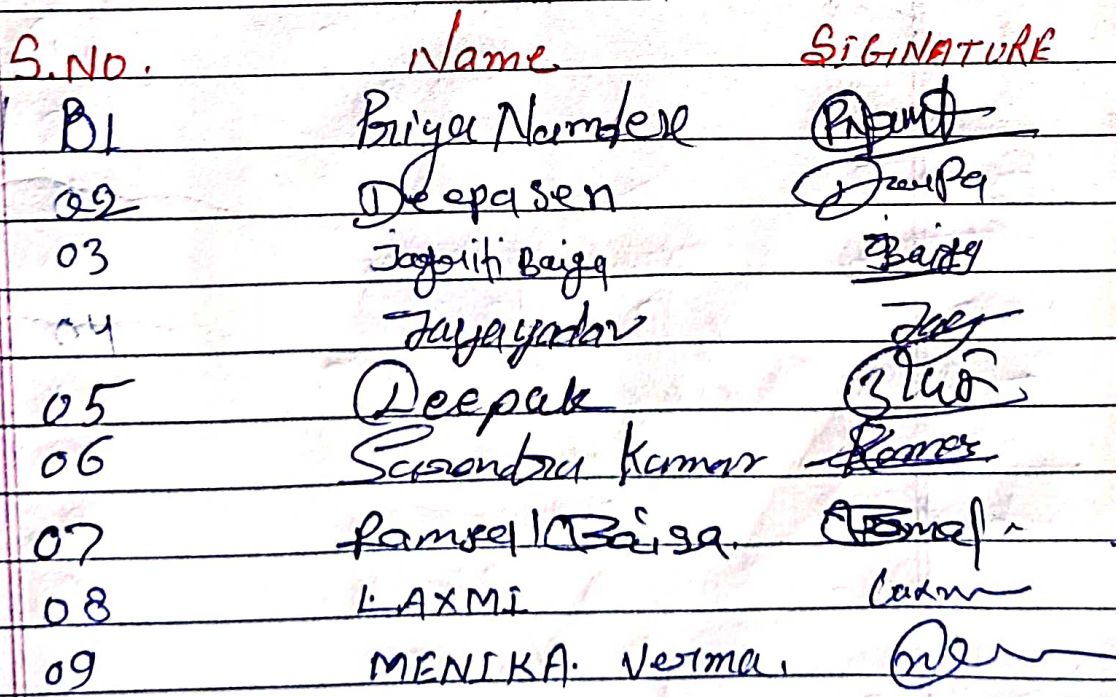 S.NO. Name SIGINATURE
B1 Priya Namdese
02 Deepasen Deepa
03 Jagriti Baiga Baiga
04 Jayayadav Jay
05 Deepak
06 Sarondra Kumar Kumar
07 Baiga.
08 LAXMI Laxm
09 MENIKA. Verma.